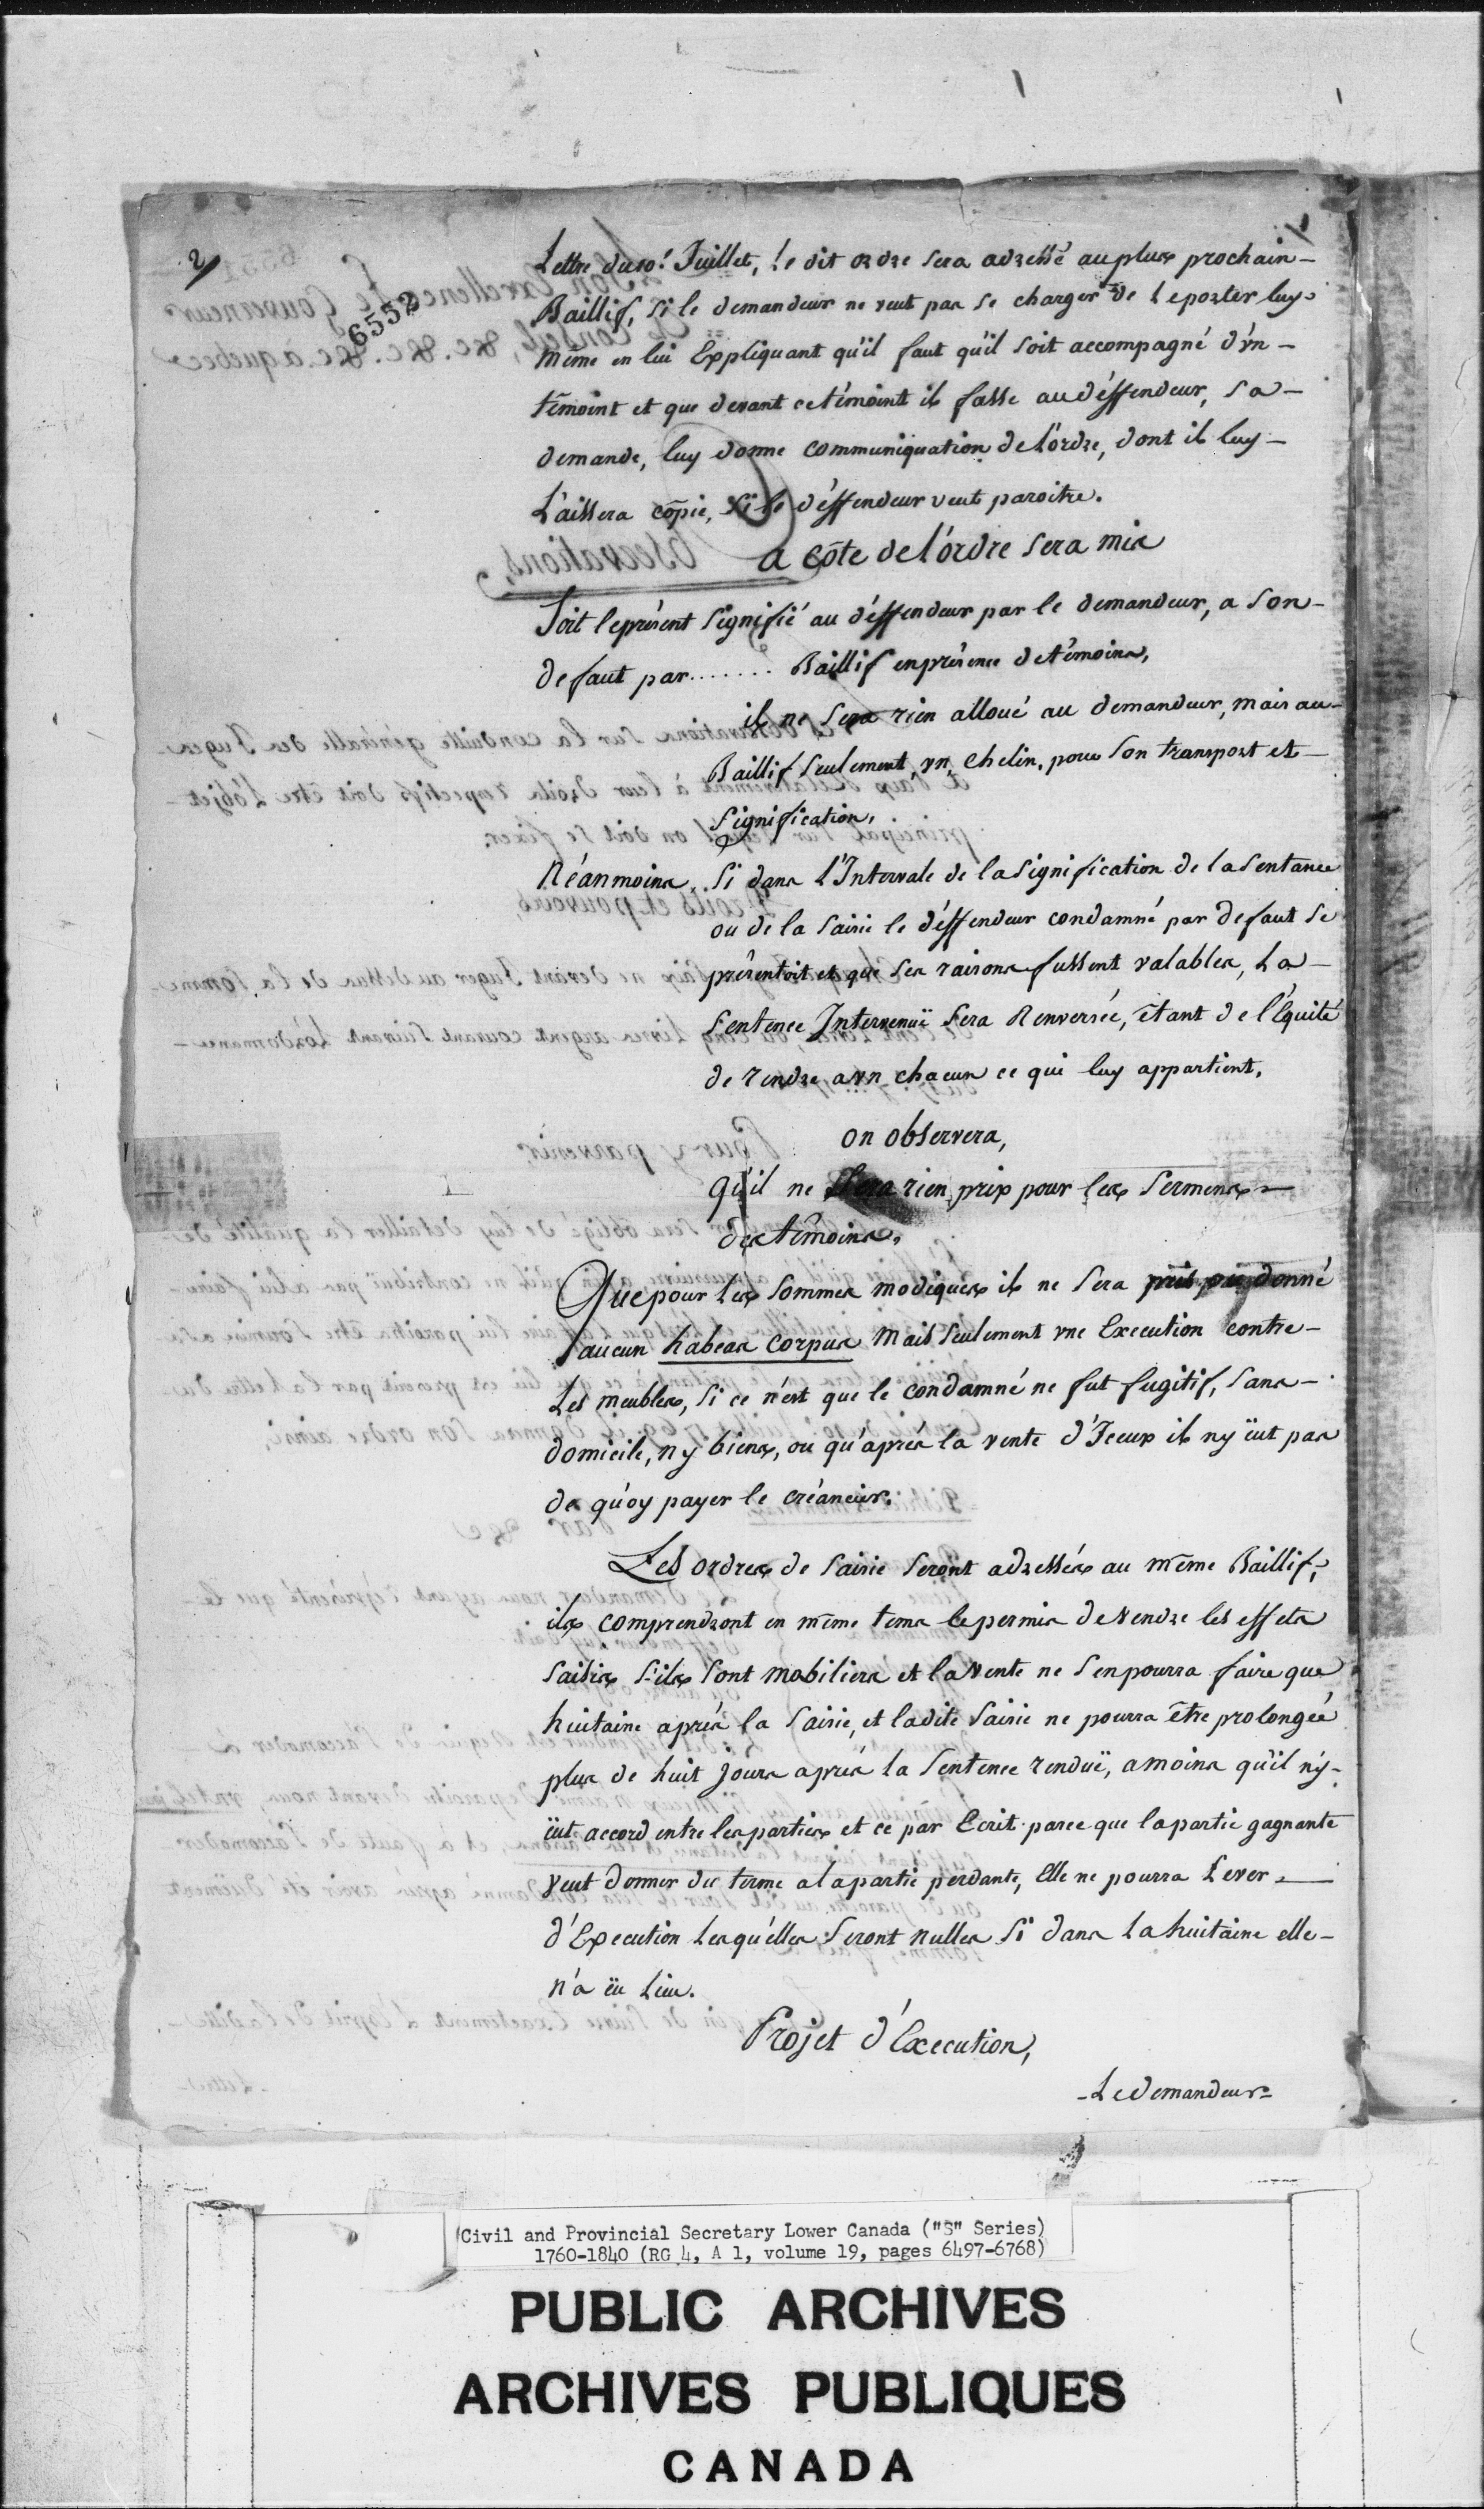 2/
6552
Lettre du 10.! Juillet, le dit ordre sera adressé au plus prochain –
Baillif, si le demandeur ne veut pas se charger de le porter luy
même en lui Expliquant qu'il faut qu'il soit accompagné d'vn –
témoint et que devant ce témoint il fasse au déffendeur, sa –
demande, luy donne communiquation de l'ordre, dont il luy –
Laissera copie, si le déffendeur veut paroitre.
a côte de l'ordre sera mis
Soit le présent signifié au déffendeur par le demandeur, a son –
defaut par ....... Baillif en présence de témoins,
il ne sera rien alloué au demandeur, mais au –
Baillif seulement vn chelin, pour son transport et –
signification,
Néanmoins, si dans L'Intervale de la signification de la sentance
ou de la saisie le déffendeur condamné par defaut se
présentoit et que ses raisons fussent valables, La –
sentence Intervenuë sera Renversée, êtant de l'Équité
de rendre a vn chacun ce qui luy appartient,
on observera,
qu'il ne sera rien pris pour les sermens –
des témoins,
Que pour les sommes modiques il ne sera donné
aucun habeas corpus Mais seulement vne Execution contre –
Les meubles, si ce n'est que le condamné ne fut fugitif, sans –
domicile, ny biens, ou qu'après la vente d'Iceux il ny üt pas
de qu'oy payer le créancier.
Les ordres de saisie seront adressés au même Baillif,
ils comprendront en même tems le permis de vendre les effets
saisis s'ils sont mobiliers et la vente ne s'en pourra faire que
huitaine après la saisie, et ladite saisie ne pourra être prolongée
plus de huit jours après la sentence renduë, a moins qu'il n'y –
üt accord entre les parties et ce par Ecrit parce que la partie gagnante
veut donner du terme a la partie perdante, Elle ne pourra Lever –
d'Execution Lesqu'elles seront nulles si dans La huitaine elle –
n'a ëu Lieu.
Projet d'Execution,
– Le demandeur –
Civil and Provincial Secretary Lower Canada ("S" Series)
1760-1840 (RG 4, A 1, volume 19, pages 6497-6768)
PUBLIC ARCHIVES
ARCHIVES PUBLIQUES
CANADA